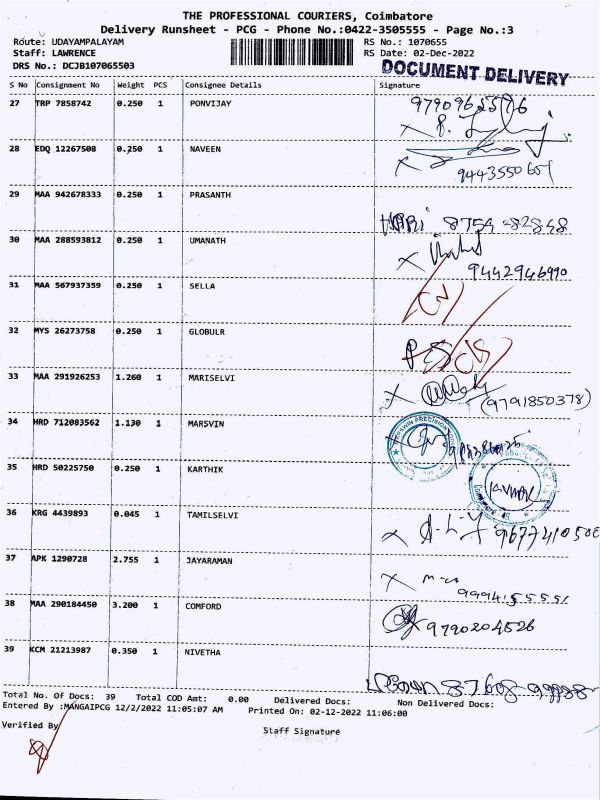 THE PROFESSIONAL COURIERS, Coimbatore
Delivery Runsheet - PCG - Phone No.:0422-3505555 - Page No.:3
Route: UDAYAMPALAYAM RS No.: 1070655
Staff: LAWRENCE RS Date: 02-Dec-2022
DRS No.: DCJB107065503 DOCUMENT DELIVERY
S No Consignment No Weight PCS Consignee Details Signature
27 TRP 7858742 0.250 1 PONVIJAY
28 EDQ 12267508 0.250 1 NAVEEN
29 MAA 942678333 0.250 1 PRASANTH
HARI 8754 482848
30 MAA 288593812 0.250 1 UMANATH
9442946990
31 MAA 567937359 0.250 1 SELLA
32 MYS 26273758 0.250 1 GLOBULR
33 MAA 291926253 1.260 1 MARISELVI
(9791850378)
34 HRD 712083562 1.130 1 MARSVIN
35 HRD 50225750 0.250 1 KARTHIK
36 KRG 4439893 0.045 1 TAMILSELVI
37 APK 1290728 2.755 1 JAYARAMAN
38 MAA 290184450 3.200 1 COMFORD
9790204526
39 KCM 21213987 0.350 1 NIVETHA
Total No. Of Docs: 39 Total COD Amt: 0.00 Delivered Docs: Non Delivered Docs:
Entered By :MANGAIPCG 12/2/2022 11:05:07 AM Printed On: 02-12-2022 11:06:00
Verified By Staff Signature